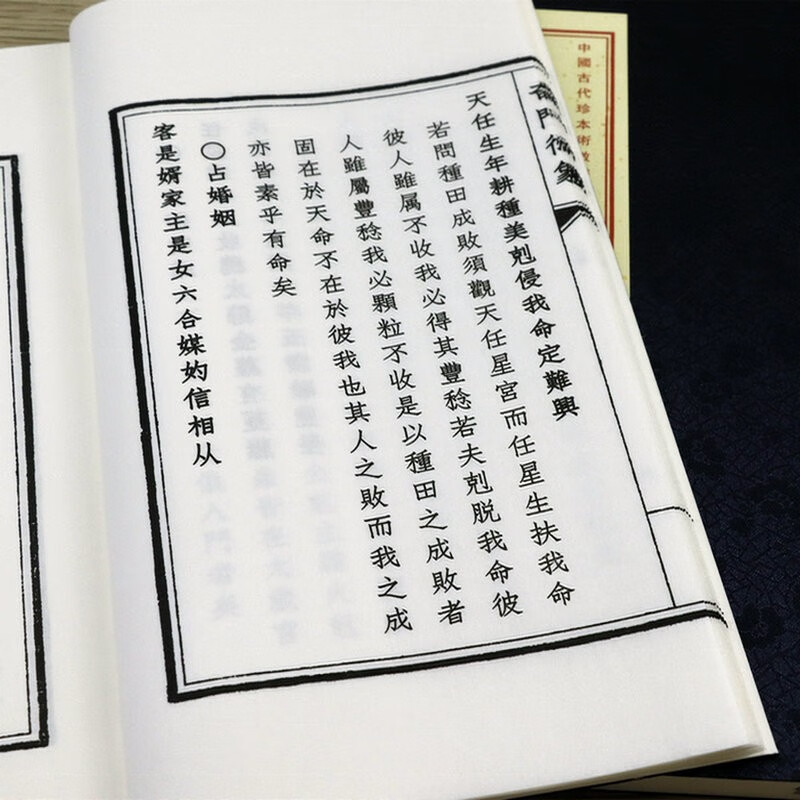 中國古代珍本術
奇門
天任生年耕種美剋侵我命定難興
若問種田成敗須觀天任星宮而任星生扶我命
彼人雖属不收我必得其豐稔若夫剋脱我命彼
人雖屬豐稔我必顆粒不收是以種田之成敗者
固在於天命不在於彼我也其人之敗而我之成
亦皆素乎有命矣
○占婚姻
客是婿家主是女六合媒妁信相从